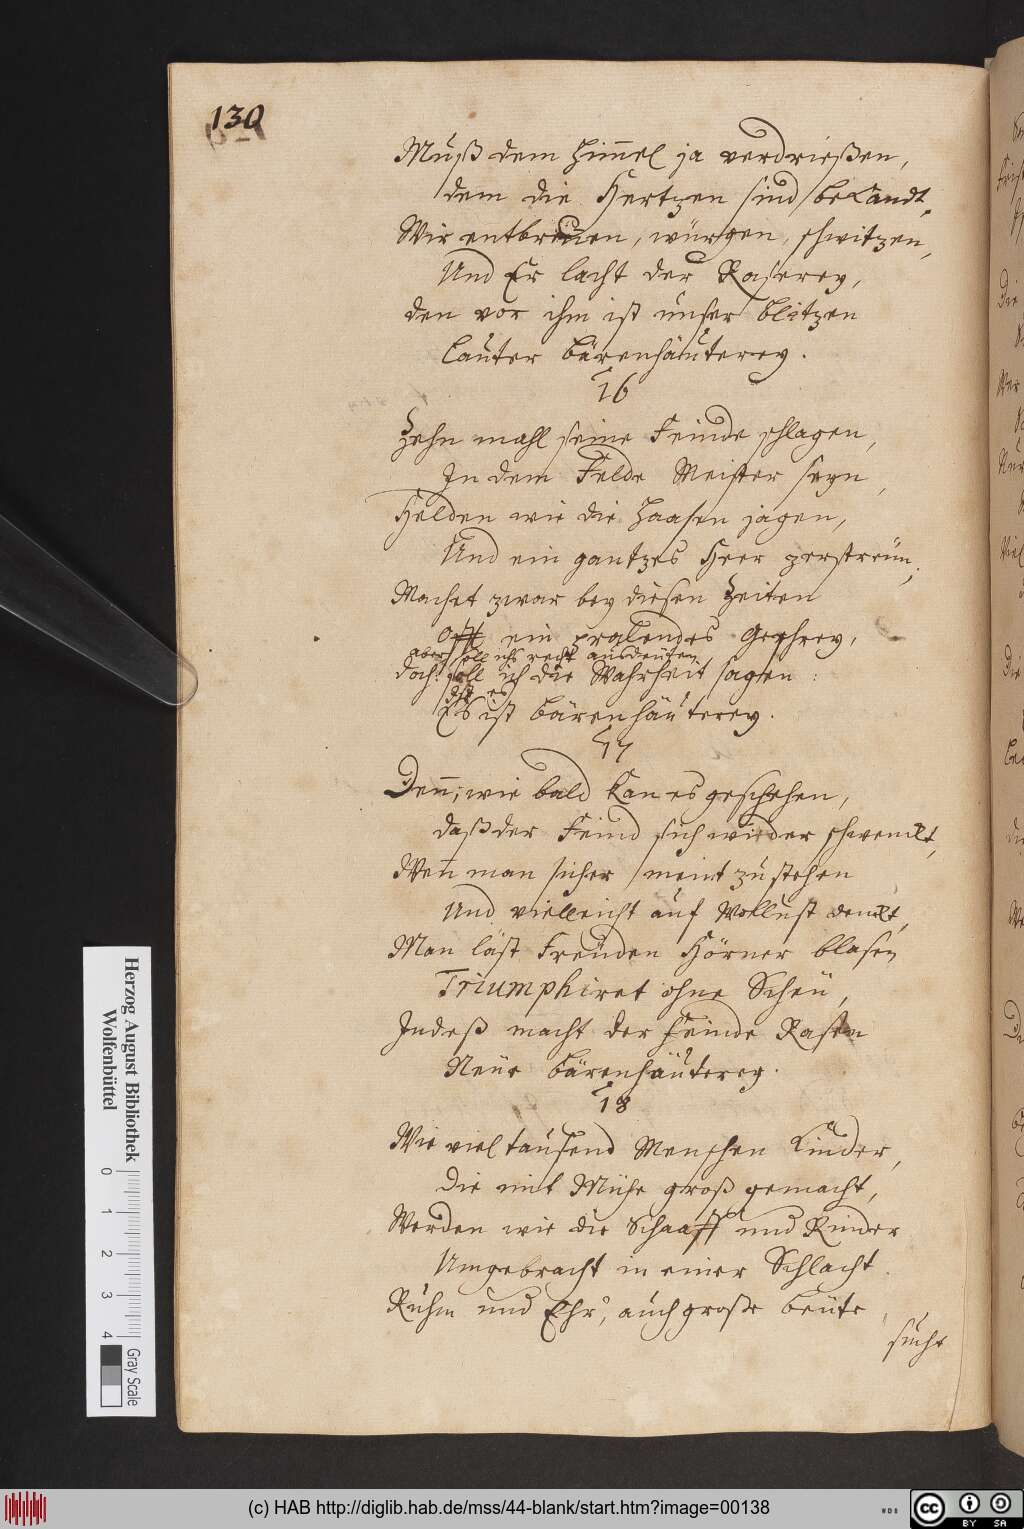 130
Muß dem Himmel ja verdrießen,
dem die Hertzen sind bekandt.
Wir entbrennen, würgen, schwitzen,
Und Er lacht der Raserey,
den vor ihm ist unser blitzen
lauter bärenhäuterey.
16
Zehn mahl seine Feinde schlagen,
In dem Felde Meister seyn,
Helden wie die Haasen jagen,
Und ein gantzes Heer zerstreün,
Machet zwar bey diesen Zeiten
Offt ein pralendes Geschrey,
aber soll ichs recht ausdeuten
doch: soll ich die Wahrheit sagen:
Ist es
Es ist bärenhäuterey.
17
Denn, wie bald kan es geschehen,
daß der Feind sich wieder schwenckt,
Wen̄ man sicher meint zu stehen
Und vielleicht auf Wollust denckt,
Man läst Freuden Hörner blasen
Triumphiret ohne Scheu,
Indeß macht der Feinde Rasen
Neue bärenhäuterey.
18
Wie viel tausend Menschen Kinder,
die mit Mühe groß gemacht,
Werden wie die Schaaff und Rinder
Umgebracht in einer Schlacht.
Ruhm und Ehr, auch große beute
sucht
Herzog August Bibliothek
Wolfenbüttel
0 1 2 3 4
Gray Scale
(c) HAB http://diglib.hab.de/mss/44-blank/start.htm?image=00138
WDB
cc BY SA